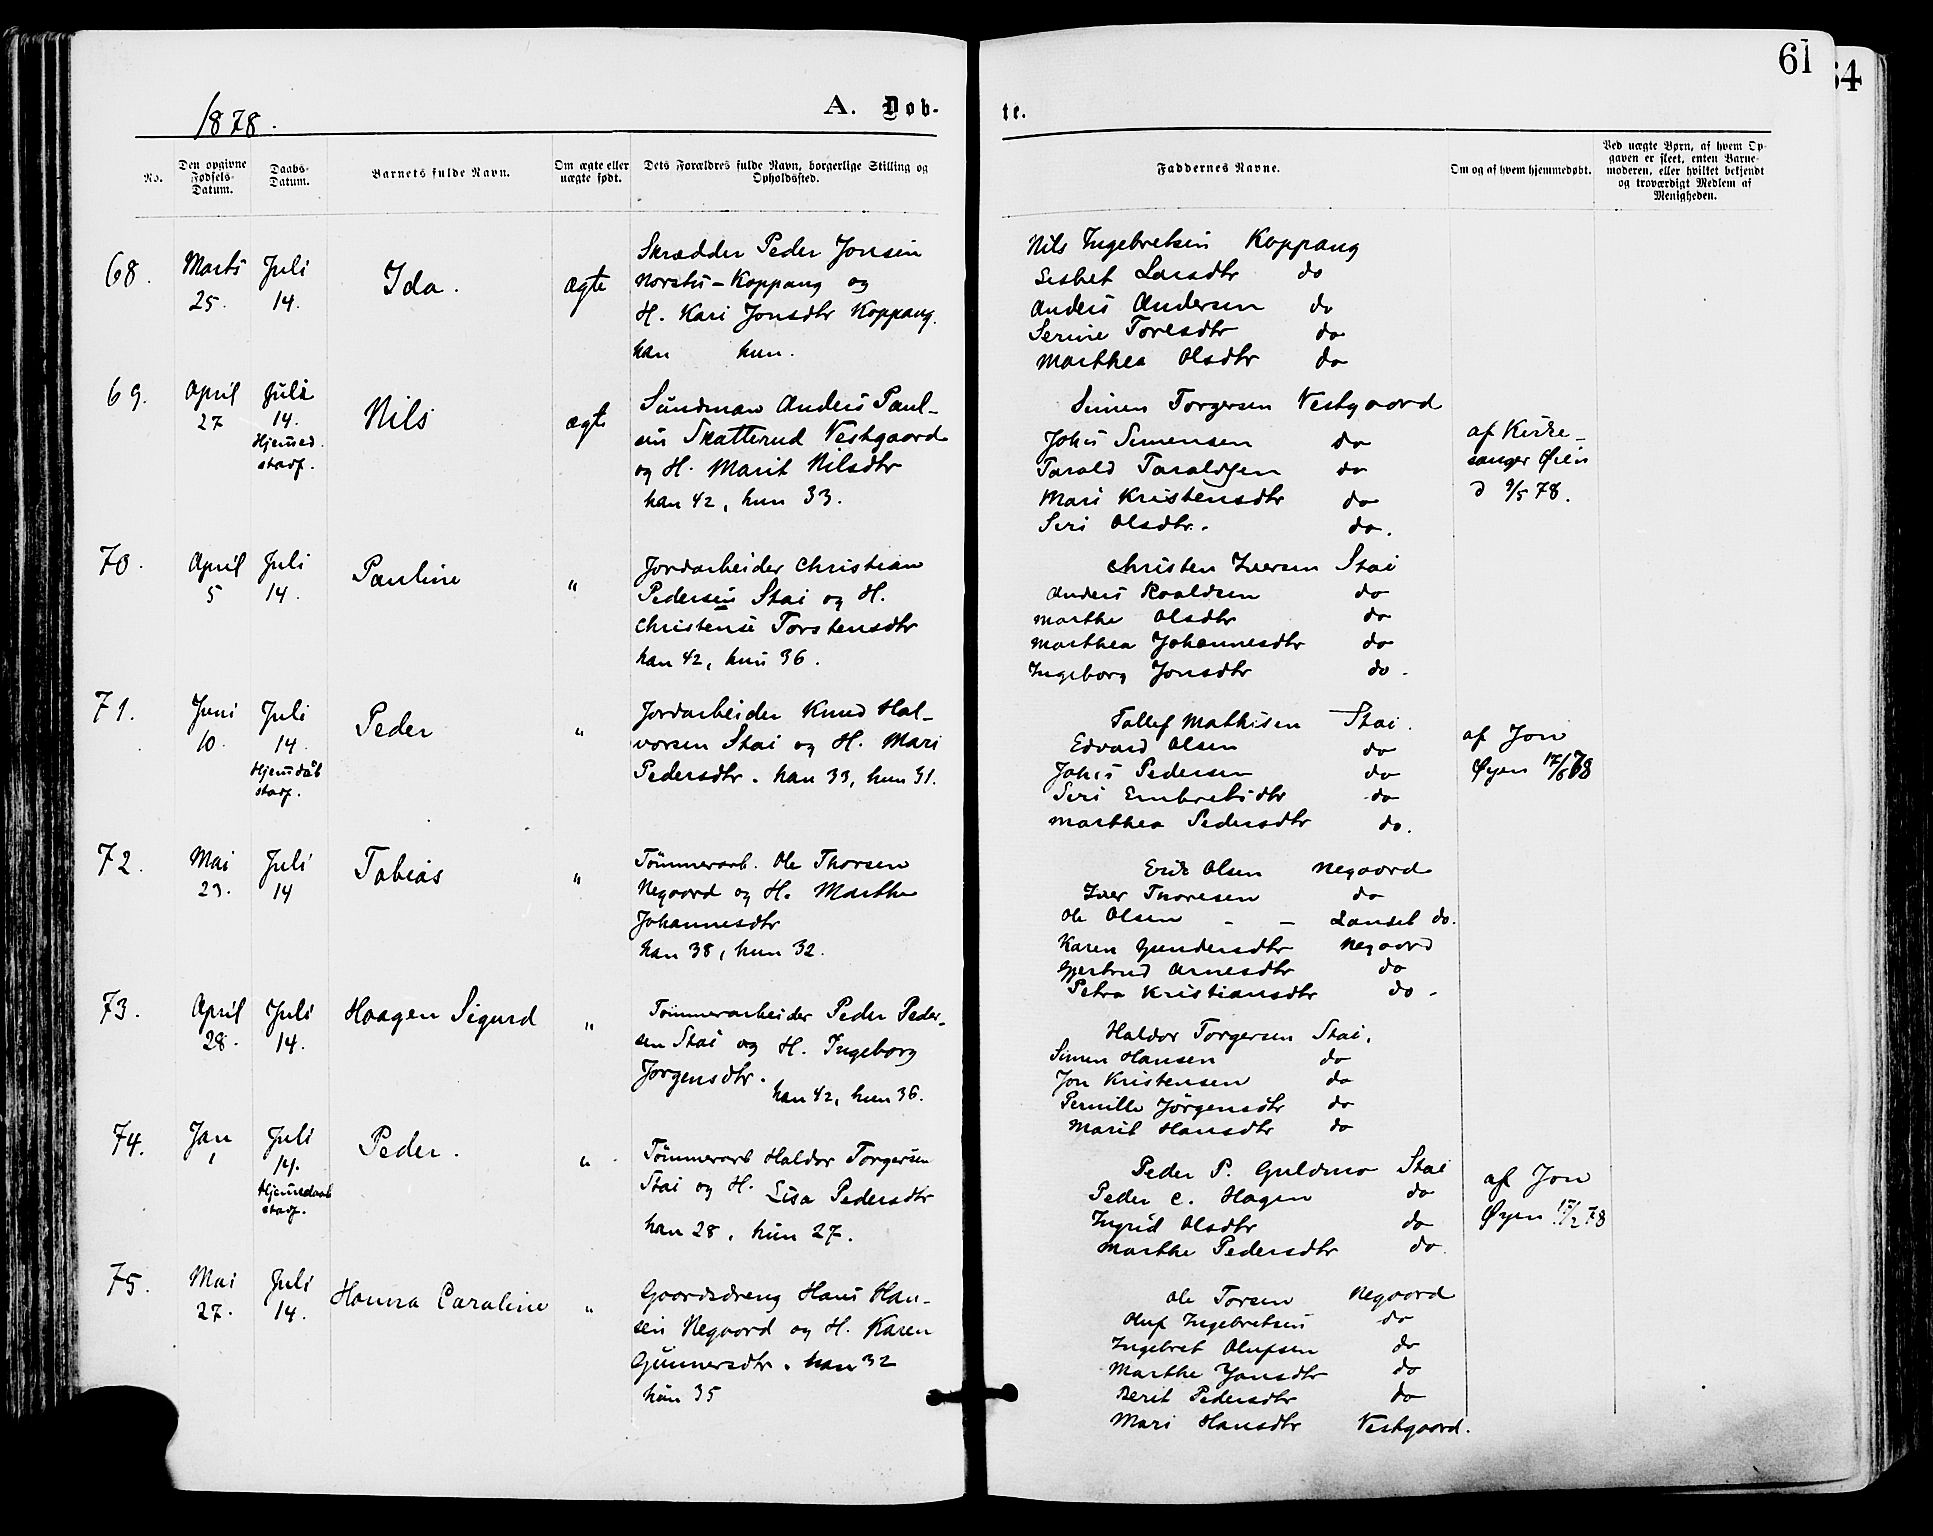 61
34
1878.
A. Døb-
te.
No.
Den opgivne Fødsels-Datum.
Daabs-Datum.
Barnets fulde Navn.
Om ægte eller uægte født.
Dets Forældres fulde Navn, borgerlige Stilling og Opholdssted.
Faddernes Navne.
Om og af hvem hjemmedøbt.
Ved uægte Børn, af hvem Op-
gaven er skeet, enten Barne-
moderen, eller hvilket bekjendt
og troværdigt Medlem af
Menigheden.
68.
Marts 25.
Juli 14.
Ida.
ægte
Skrædder Peder Jonsen
Norstu-Koppang og
H. Kari Jonsdtr Koppang.
han hun.
Nils Ingebretsen Koppang
Lisbet Larsdtr do
Anders Andersen do
Serine Toresdtr do
Marthea Olsdtr do
69.
April 27
Juli 14.
Hjemed.
stadf.
Nils
ægte
Sundman Anders Paul-
sen Skatterud Vestgaard
og H. Marit Nilsdtr
han 42, hun 33.
Simen Torgersen Vestgaard
Johs Simensen do
Tarald Taraldsen do
Mari Kristensdtr do
Siri Olsdtr. do.
af Kirke-
sanger Øien
d 9/5 78.
70.
April 5
Juli 14.
Pauline
"
Jordarbeider Christian
Pedersen Stai og H.
Christense Torstensdtr
han 42, hun 36.
Christen Iversen Stai
Anders Roaldsen do
Marthe Olsdtr do
Marthea Johannesdtr do
Ingeborg Jonsdtr do.
71.
Juni 10.
Juli 14.
Hjemdøb
stadf.
Peder
"
Jordarbeider Knud Hal-
vorsen Stai og H. Mari
Pedersdtr. han 33, hun 31.
Tollef Mathisen Stai.
Edvard Olsen do
Johs Pedersen do
Siri Embretsdtr do
Marthea Pedersdtr do.
af Jon
Øyen 17/6 78
72.
Mai 23.
Juli 14
Tobias
"
Tømmerarb. Ole Thorsen
Negaard og H. Marthe
Johannesdtr
han 38, hun 32.
Erik Olsen Negaard
Iver Thoresen do
Ole Olsen - - Landet do.
Karen Gundersdtr Negaard
Gjertrud Arnesdtr do
Petra Kristiansdtr do.
73.
April 28.
Juli 14.
Haagen Sigurd
"
Tømmerarbeider Peder Peder-
sen Stai og H. Ingeborg
Jørgensdtr.
han 42, hun 36.
Haldor Torgersen Stai.
Simen Hansen do
Jon Kristensen do
Pernille Jørgensdtr do
Marit Hansdtr do
74.
Jan 1
Juli 14.
Hjemdaab
stadf.
Peder.
"
Tømmerarb Haldor Torgersen
Stai og H. Lisa Pedersdtr
han 28, hun 27.
Peder P. Guldmo Stai
Peder C. Hagen do
Ingrid Olsdtr do
Marthe Pedersdtr do.
af Jon
Øyen 17/2 78
75.
Mai 27.
Juli 14.
Hanna Caroline
"
Gaardsdreng Hans Han-
sen Negaard og H. Karen
Gunnersdtr. han 32
hun 35
Ole Torsen Negaard
Oluf Ingebretsen do
Ingebret Olufsen do
Marthe Jonsdtr do
Berit Pedersdtr do
Mari Hansdtr Vestgaard.